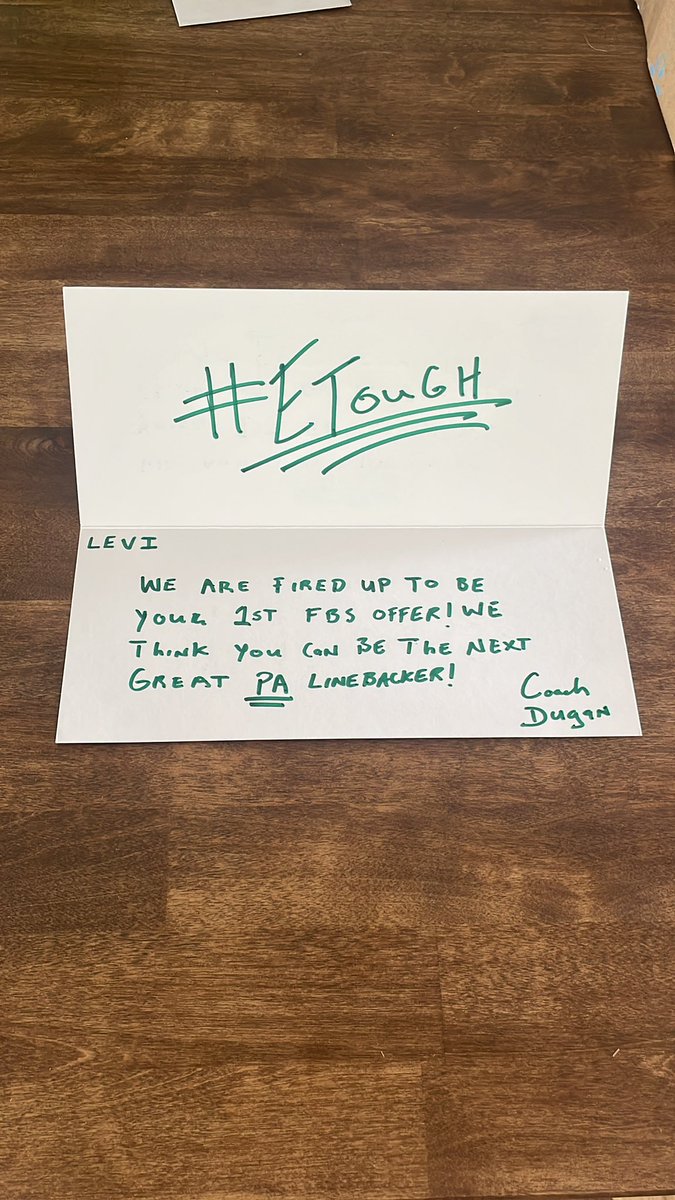 #ETOUGH
LEVI
WE ARE FIRED UP TO BE
YOUR 1ST FBS OFFER! WE
THINK YOU CAN BE THE NEXT
GREAT PA LINEBACKER!
Coach
Dugan